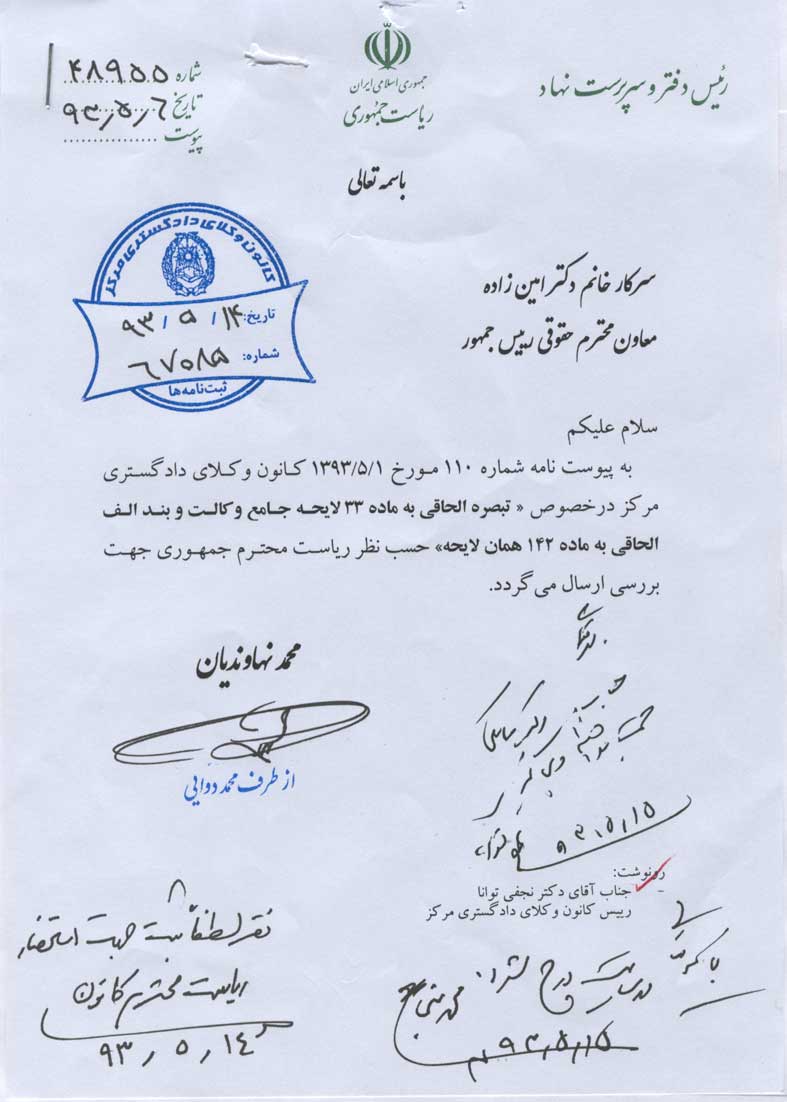 رئیس دفتر و سرپرست نهاد
جمهوری اسلامی ایران
ریاست جمهوری
شماره ۴۸۹۵۵
تاریخ ۹۳٫۵٫۶
پیوست ................
باسمه تعالی
کانون وکلای دادگستری مرکز
تاریخ: ۹۳ / ۵ / ۱۴
شماره: ۶۷۰۸۵
ثبت نامه‌ها
سرکار خانم دکتر امین زاده
معاون محترم حقوقی رییس جمهور
سلام علیکم
به پیوست نامه شماره ۱۱۰ مورخ ۱۳۹۳/۵/۱ کانون وکلای دادگستری
مرکز درخصوص « تبصره الحاقی به ماده ۳۳ لایحه جامع وکالت و بند الف
الحاقی به ماده ۱۴۲ همان لایحه» حسب نظر ریاست محترم جمهوری جهت
بررسی ارسال می گردد.
محمد نهاوندیان
از طرف محمد دوایی
۹۳٫۵٫۱۵
رونوشت:
- جناب آقای دکتر نجفی توانا
رییس کانون وکلای دادگستری مرکز
لطفاً ثبت جهت استحضار
ریاست محترم کانون
۹۳٫۵٫۱۴
۹۳٫۵٫۱۵